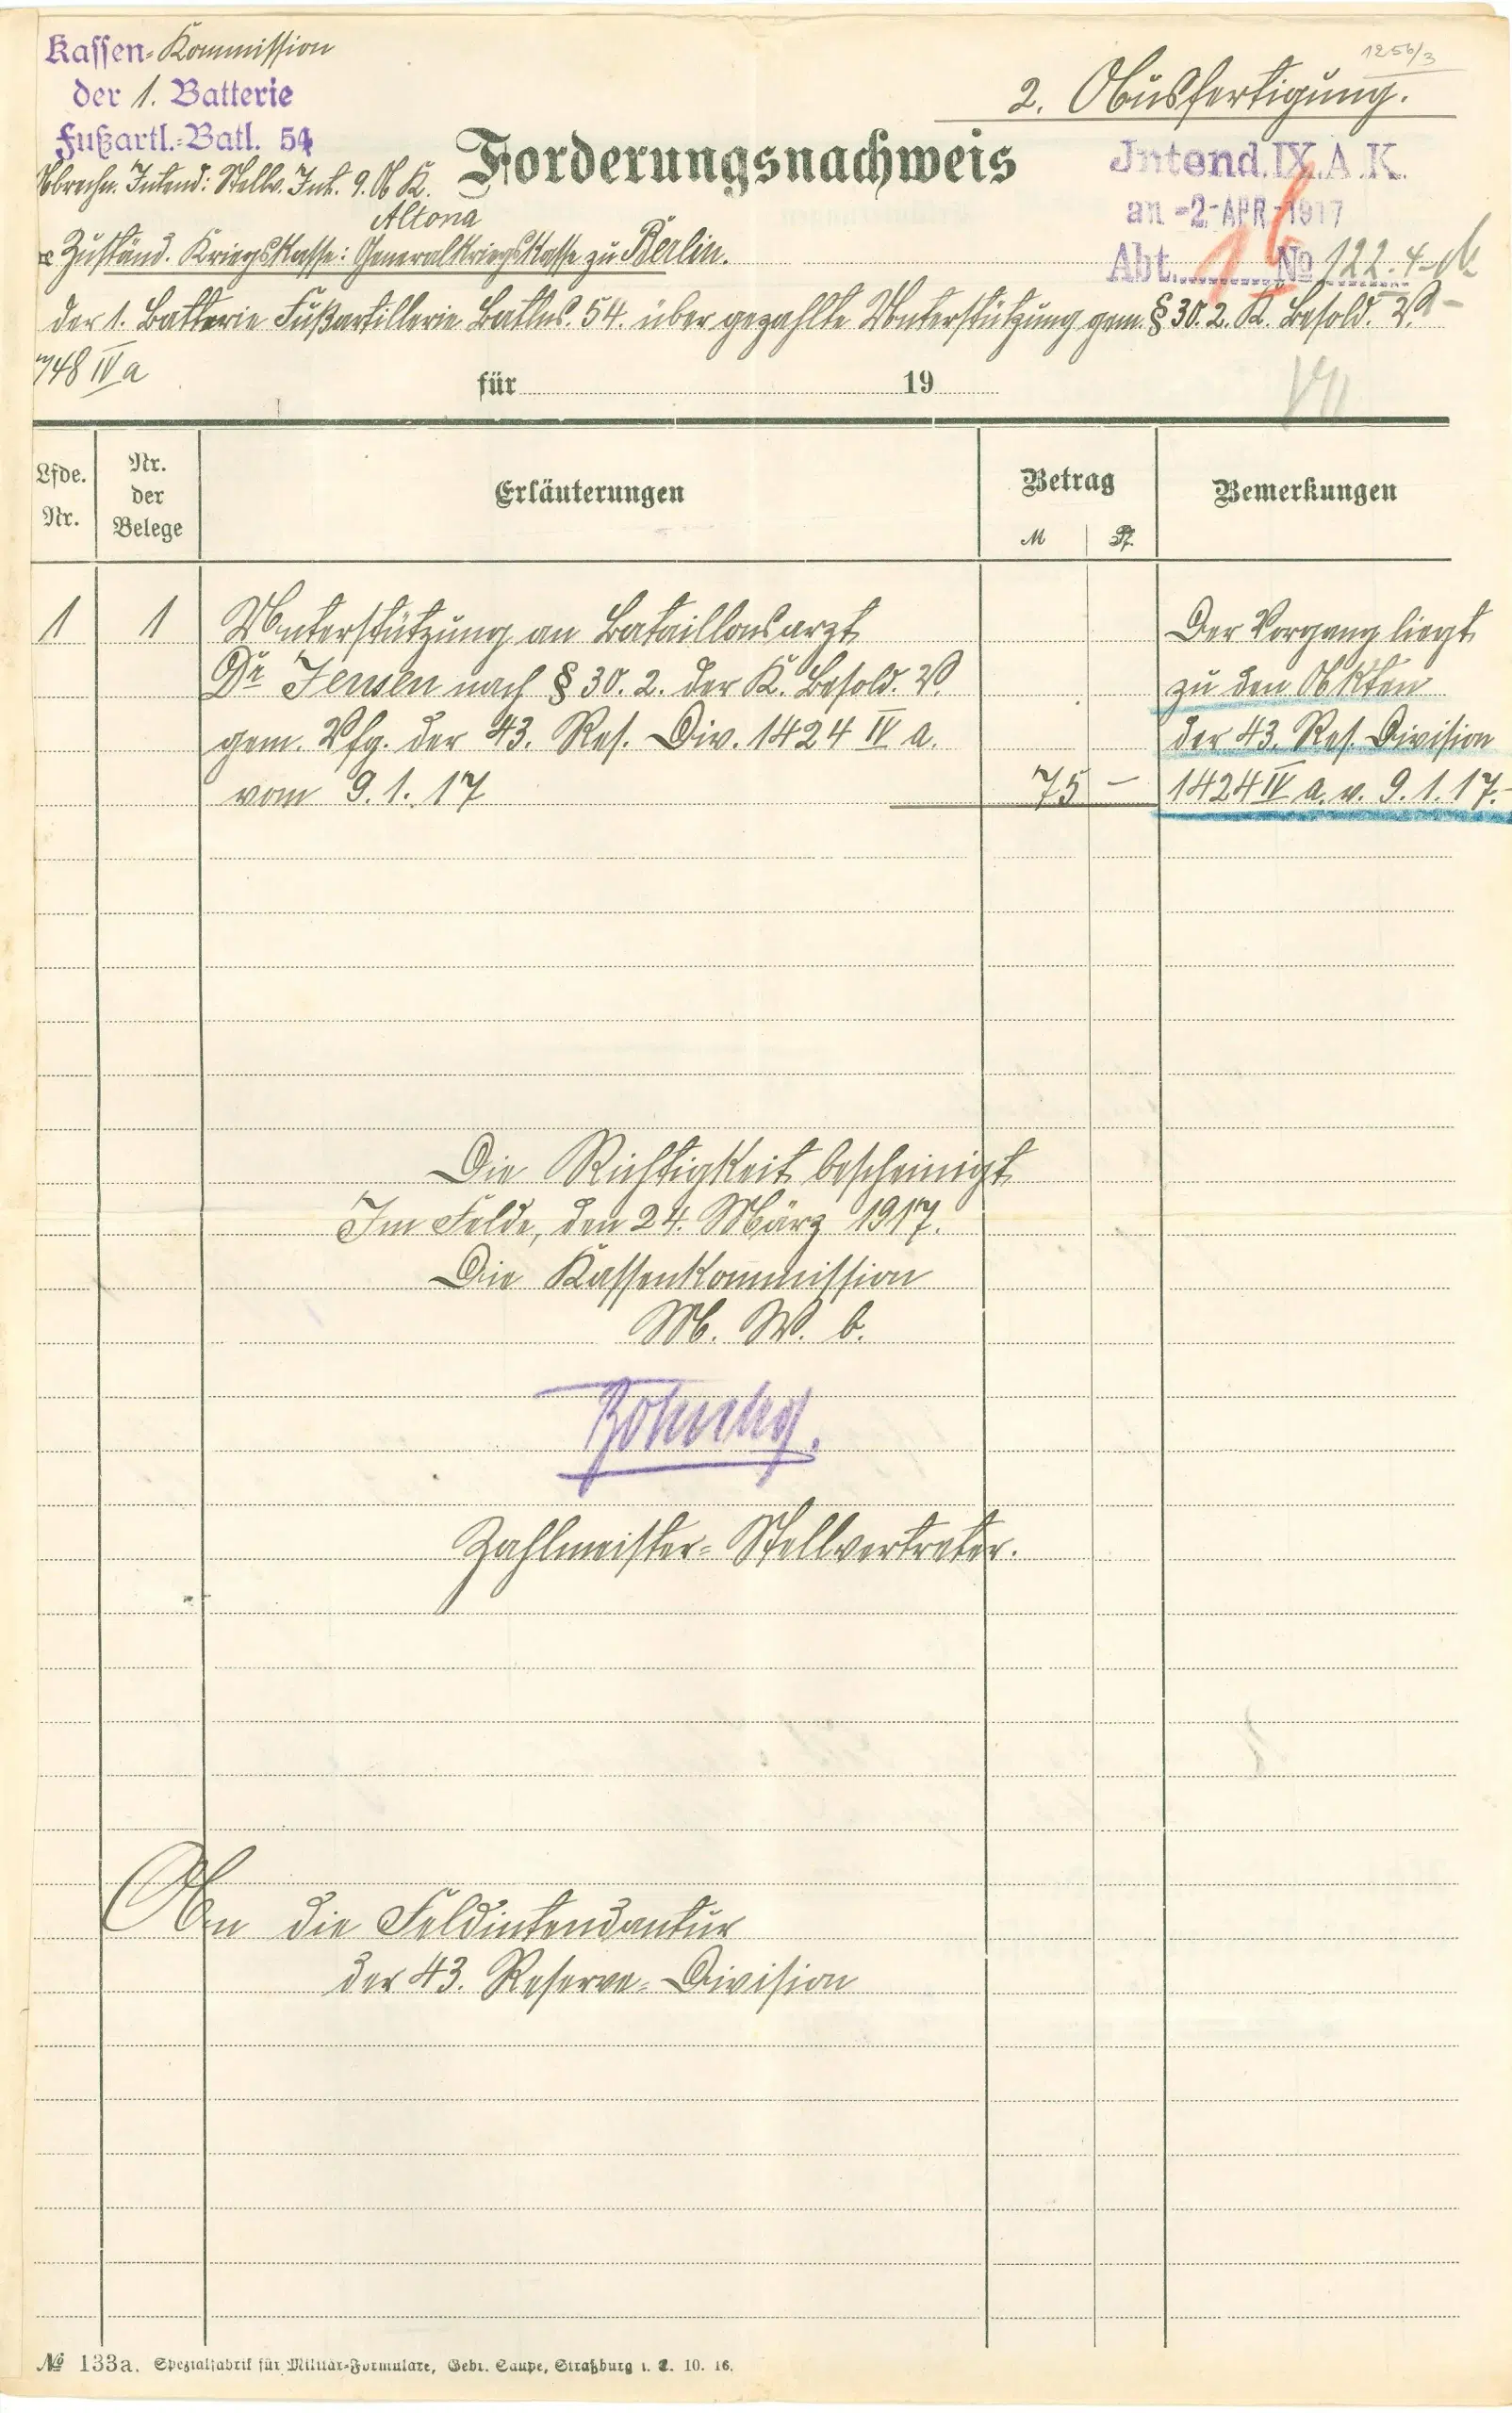 Kassen-Kommission
der 1. Batterie
Fußartl.-Batl. 54
1256/3
2. Ausfertigung.
Abrechn. Intend: Stellv. Int. 9. A. K.
Altona
Forderungsnachweis
Intend. IX. A. K.
an -2. APR. 1917
Abt. No 122. 4.
Zuständ. Kriegskasse: Generalkriegskasse zu Berlin.
der 1. Batterie Fußartillerie Batlns. 54. über gezahlte Unterstützung gem. § 30. 2. K. Besold. V.
748 IV a
für 19
VII
Lfde. Nr.
Nr. der Belege
Erläuterungen
Betrag
M Pf.
Bemerkungen
1 1 Unterstützung an Bataillonsarzt Der Vorgang liegt
Dr. Jensen nach § 30. 2. der K. Besold. V. zu den Akten
gem. Vfg. der 43. Res. Div. 1424 IV a. der 43. Res. Division
vom 9. 1. 17 75 – 1424 IV a. v. 9. 1. 17.-
Die Richtigkeit bescheinigt
Im Felde, den 24. März 1917.
Die Kassenkommission
M. W. b.
Zahlmeister-Stellvertreter.
An die Feldintendantur
der 43. Reserve-Division
No 133a. Spezialfabrik für Militär-Formulare, Gebr. Saupe, Straßburg i. E. 10. 16.